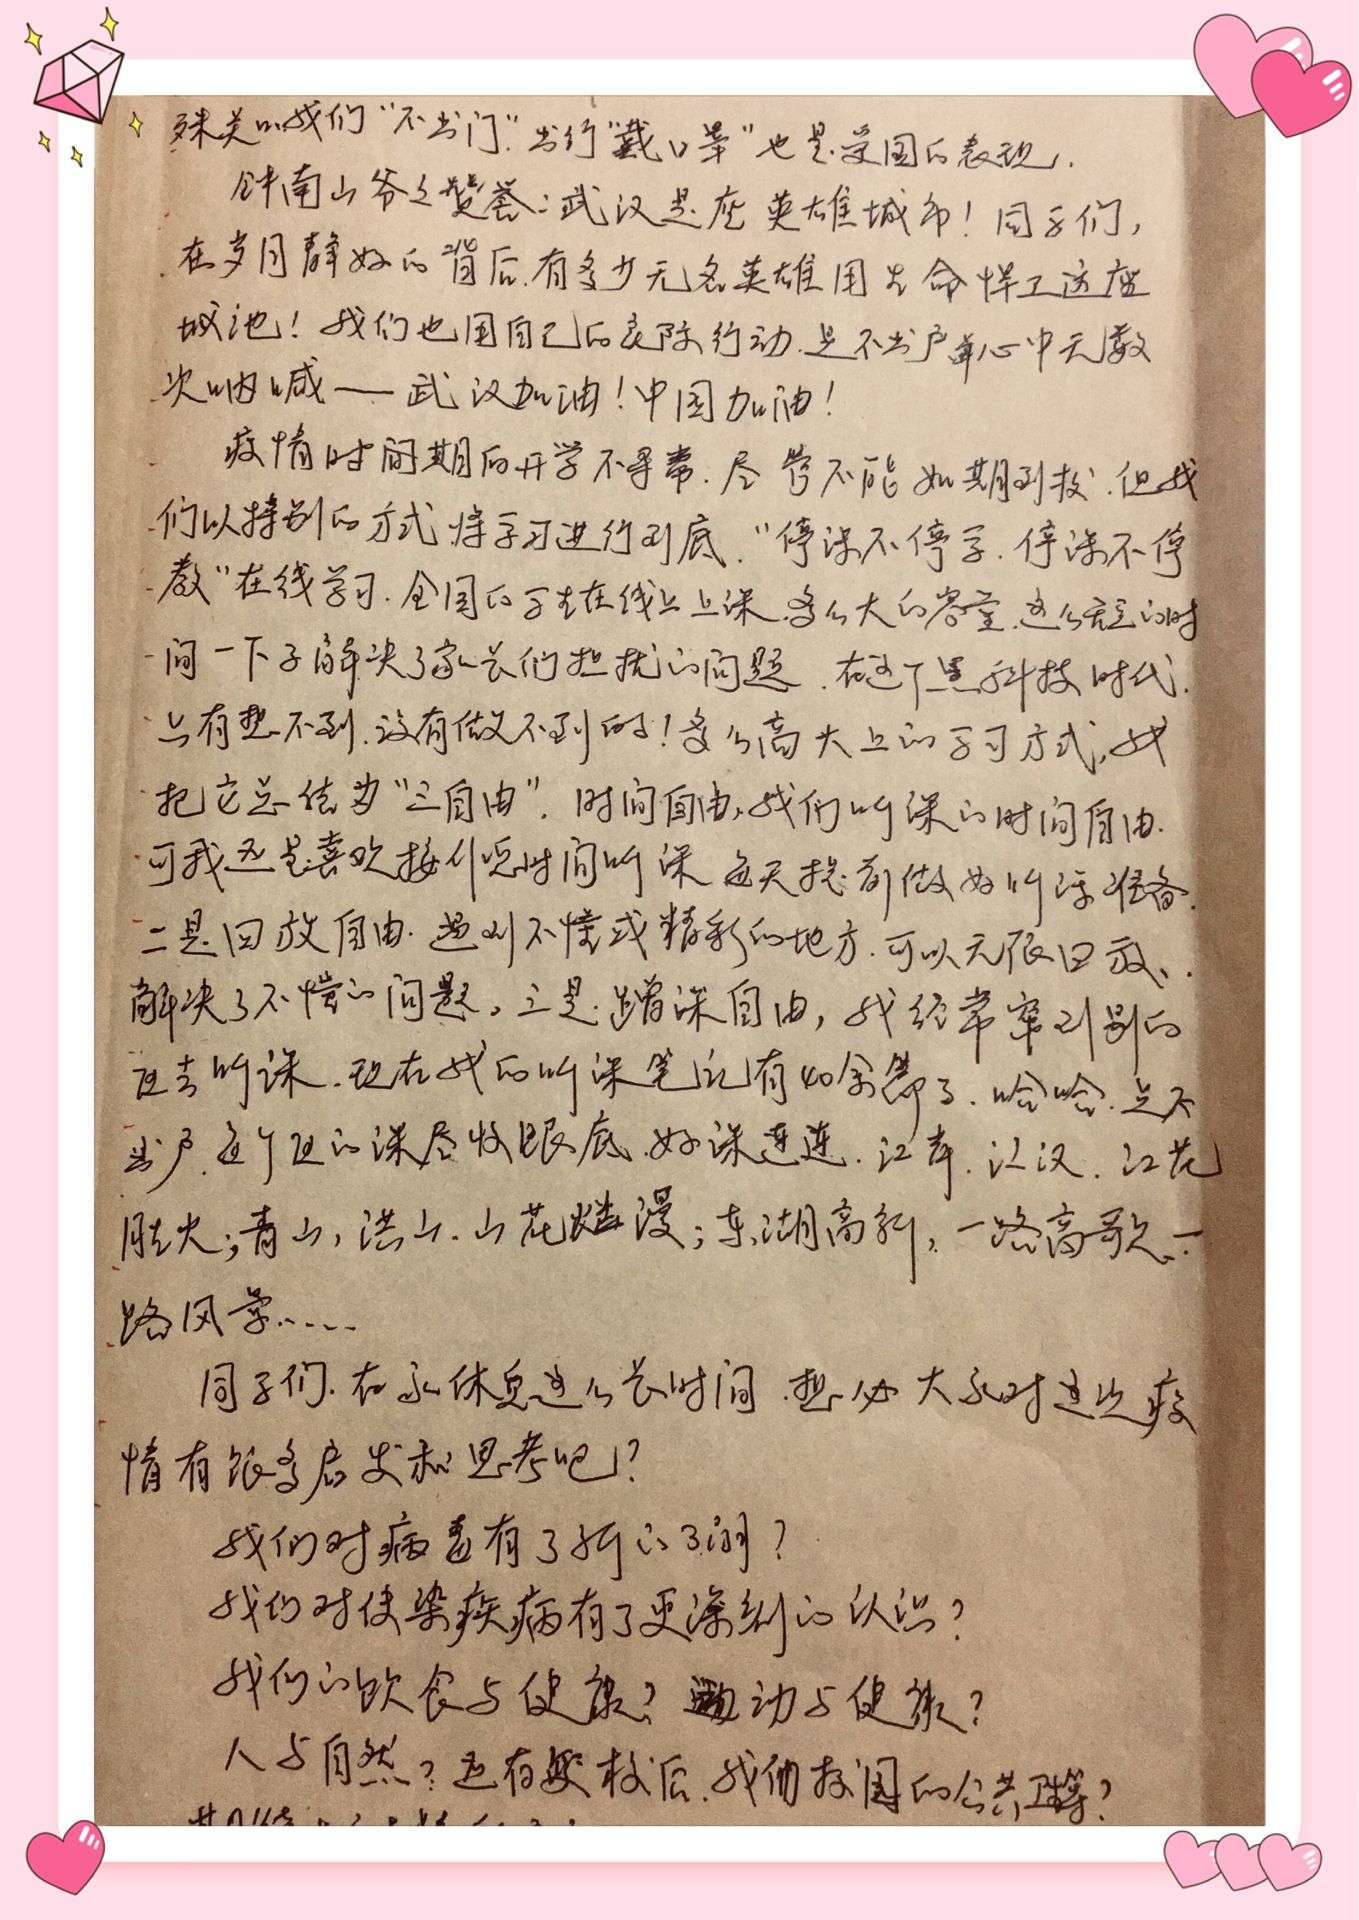 殊关心我们“不出门”.出行“戴口罩”也是爱国的表现.
钟南山爷爷赞誉:武汉是座英雄城市!同学们,
在岁月静好的背后.有多少无名英雄用生命悍卫这座
城池!我们也用自己的实际行动.足不出户 心中无数
次呐喊——武汉加油!中国加油!
疫情时间期的开学不寻常.尽管不能如期到校.但我
们以特别的方式.将学习进行到底.“停课不停学.停课不停
教”在线学习.全国的学生在线上上课.多么大的容量.这么 的时
间一下子解决了家长们担扰的问题.在这个黑科技时代.
只有想不到.没有做不到的!多么高大上的学习方式,我
把它总结为“三自由”.时间自由,我们听课的时间自由.
可我还是喜欢按 时间听课 每天提前做好听课准备.
二是回放自由.遇到不懂或精彩的地方.可以无限回放、.
解决了不懂的问题。三是.蹭课自由,我经常窜到别的
区去听课.现在我的听课笔记有40余篇了.哈哈.足不
出户.各个区的课尽收眼底.好课连连.江岸.江汉.江花
胜火;青山,洪山.山花烂漫;东湖高新,一路高歌.一
路风景.....
同学们.在家休息这么长时间.想必大家对这次疫
情有很多启发和思考吧?
我们对病毒有了新的了解?
我们对传染疾病有了更深刻的认识?
我们的饮食与健康?运动与健康?
人与自然?还有返校后.我们校园的公共卫生等?